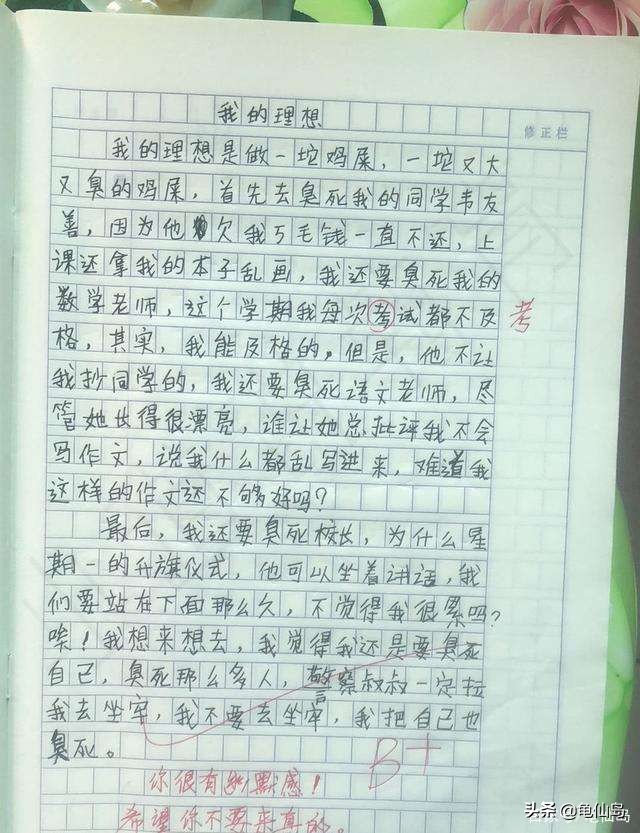 我的理想
修正栏
我的理想是做一坨鸡屎，一坨又大
又臭的鸡屎，首先去臭死我的同学韦友
善，因为他欠我5毛钱一直不还，上
课还拿我的本子乱画，我还要臭死我的
数学老师，这个学期我每次考试都不及
考
格，其实，我能及格的，但是，他不让
我抄同学的，我还要臭死语文老师，尽
管她长得很漂亮，谁让她总批评我不会
写作文，说我什么都乱写进来，难道我
这样的作文还不够好吗？
最后，我还要臭死校长，为什么星
期一的升旗仪式，他可以坐着讲话，我
们要站在下面那么久，不觉得我很累吗？
唉！我想来想去，我觉得我还是要臭死
自己，臭死那么多人，警察叔叔一定拉
我去坐牢，我不要去坐牢，我把自己也
臭死。
B+
你很有幽默感！
希望你不要来真的。
头条@龟仙岛